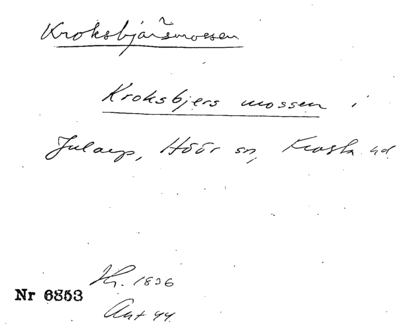 Kroksbjärsmossen
Kroksbjers mossen i
Jularp, Höör sn, Frosta hd
Hz. 1896
Nr 6853
Ant 44